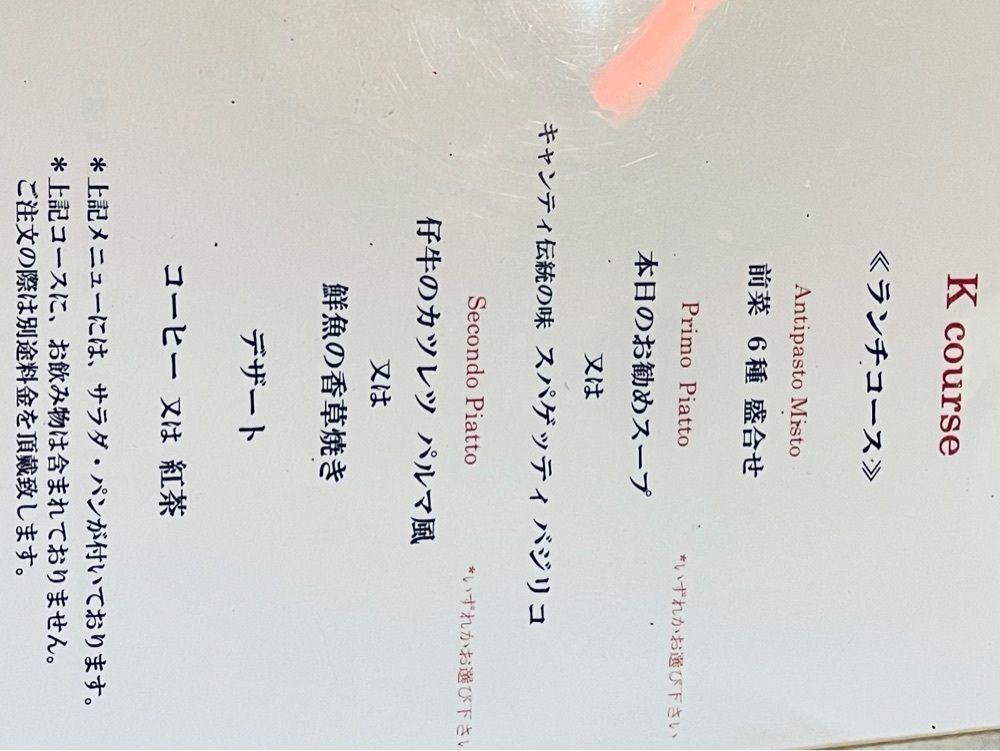 K course
≪ランチコース≫
Antipasto Misto
前菜 6種 盛合せ
Primo Piatto *いずれかお選び下さい
本日のお勧めスープ
又は
キャンティ伝統の味 スパゲッティ バジリコ
Secondo Piatto *いずれかお選び下さい
仔牛のカツレツ パルマ風
又は
鮮魚の香草焼き
デザート
コーヒー 又は 紅茶
*上記メニューには、サラダ・パンが付いております。
*上記コースに、お飲み物は含まれておりません。
ご注文の際は別途料金を頂戴致します。